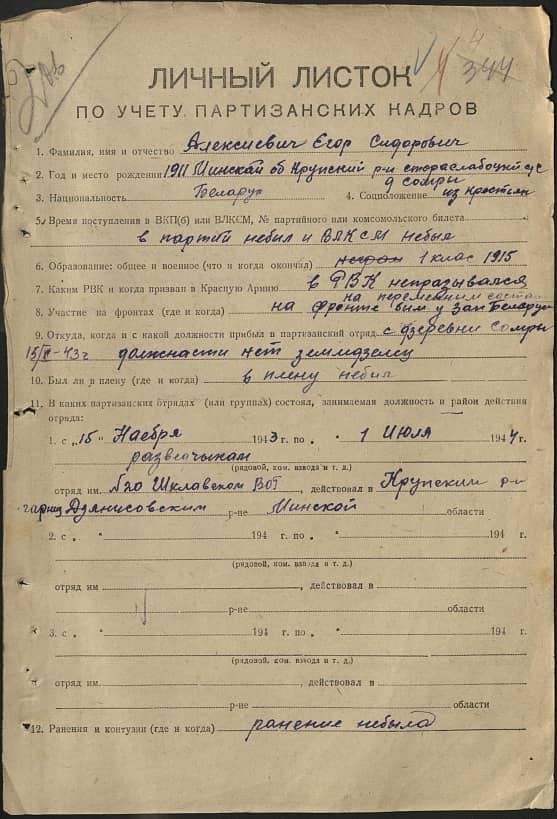 344
ЛИЧНЫЙ ЛИСТОК
ПО УЧЕТУ ПАРТИЗАНСКИХ КАДРОВ
1. Фамилия, имя и отчество Алексиевич Егор Сидорович
2. Год и место рождения 1911 Минскай об Крупский р-н стараслабоцкий с/с
д сомры
3. Национальность Беларус 4. Соцположение из крестьян
5. Время поступления в ВКП(б) или ВЛКСМ, № партийного или комсомольского билета
в партий небыл и ВЛКСМ небыл
6. Образование: общее и военное (что и когда окончил) 1 клас 1915
7. Каким РВК и когда призван в Красную Армию в РВК непразывался
на переменним состав
8. Участие на фронтах (где и когда) на фронте был у зап Беларуси
9. Откуда, когда и с какой должности прибыл в партизанский отряд с дзеревни сомры
43г должнасти нет земледзелец
10. Был ли в плену (где и когда) в плену небыл
11. В каких партизанских отрядах (или группах) состоял, занимаемая должность и район действия
отряда:
1. с „15" Наебря 1943 г. по „ 1 Июля 1944 г.
разведчыкам
(рядовой, ком. взвода и т. д.)
отряд им. №20 Шкловском ВОГ, действовал в Крупским р-н
Дзянисовским р-не Минской области
2. с „ " 194 г. по „ " 194 г.
(рядовой, ком. взвода и т. д.)
отряд им , действовал в
р-не области
3. с „ " 194 г. по „ " 194 г.
(рядовой, ком. взвода и т. д.)
отряд им. , действовал в
р-не области
12. Ранения и контузии (где и когда) ранение небыла